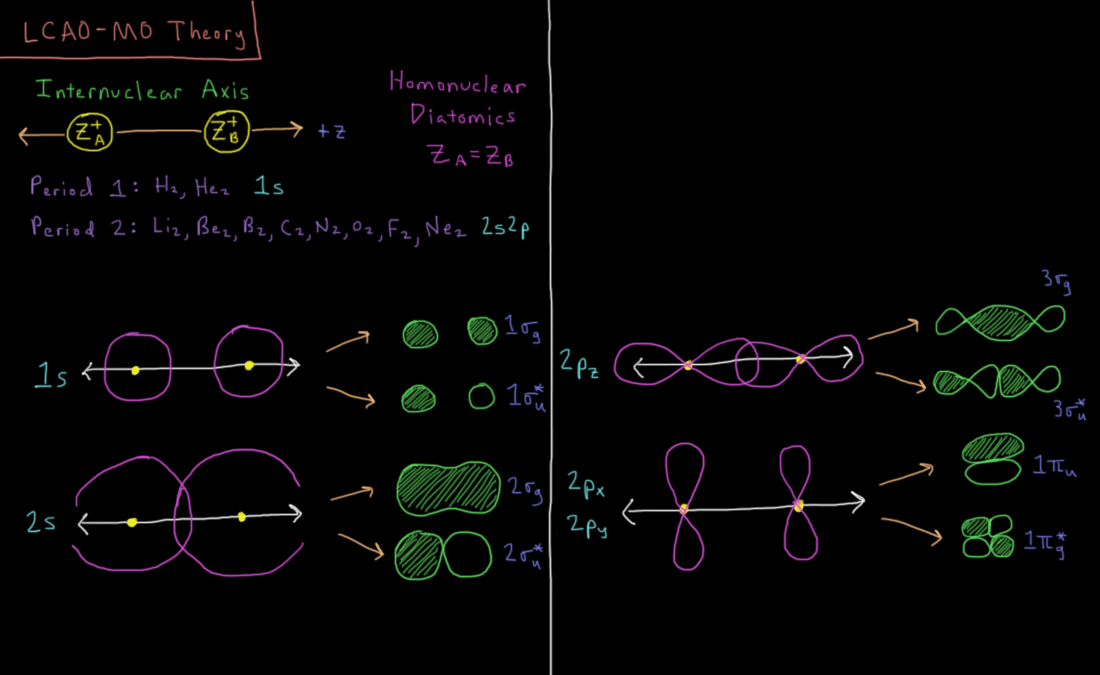 LCAO-MO Theory
Internuclear Axis
Z_A^+ Z_B^+ +z
Homonuclear
Diatomics
Z_A = Z_B
Period 1: H₂, He₂ 1s
Period 2: Li₂, Be₂, B₂, C₂, N₂, O₂, F₂, Ne₂ 2s2p
1s
1σ_g
1σ_u^*
2s
2σ_g
2σ_u^*
2p_z
3σ_g
3σ_u^*
2p_x
2p_y
1π_u
1π_g^*